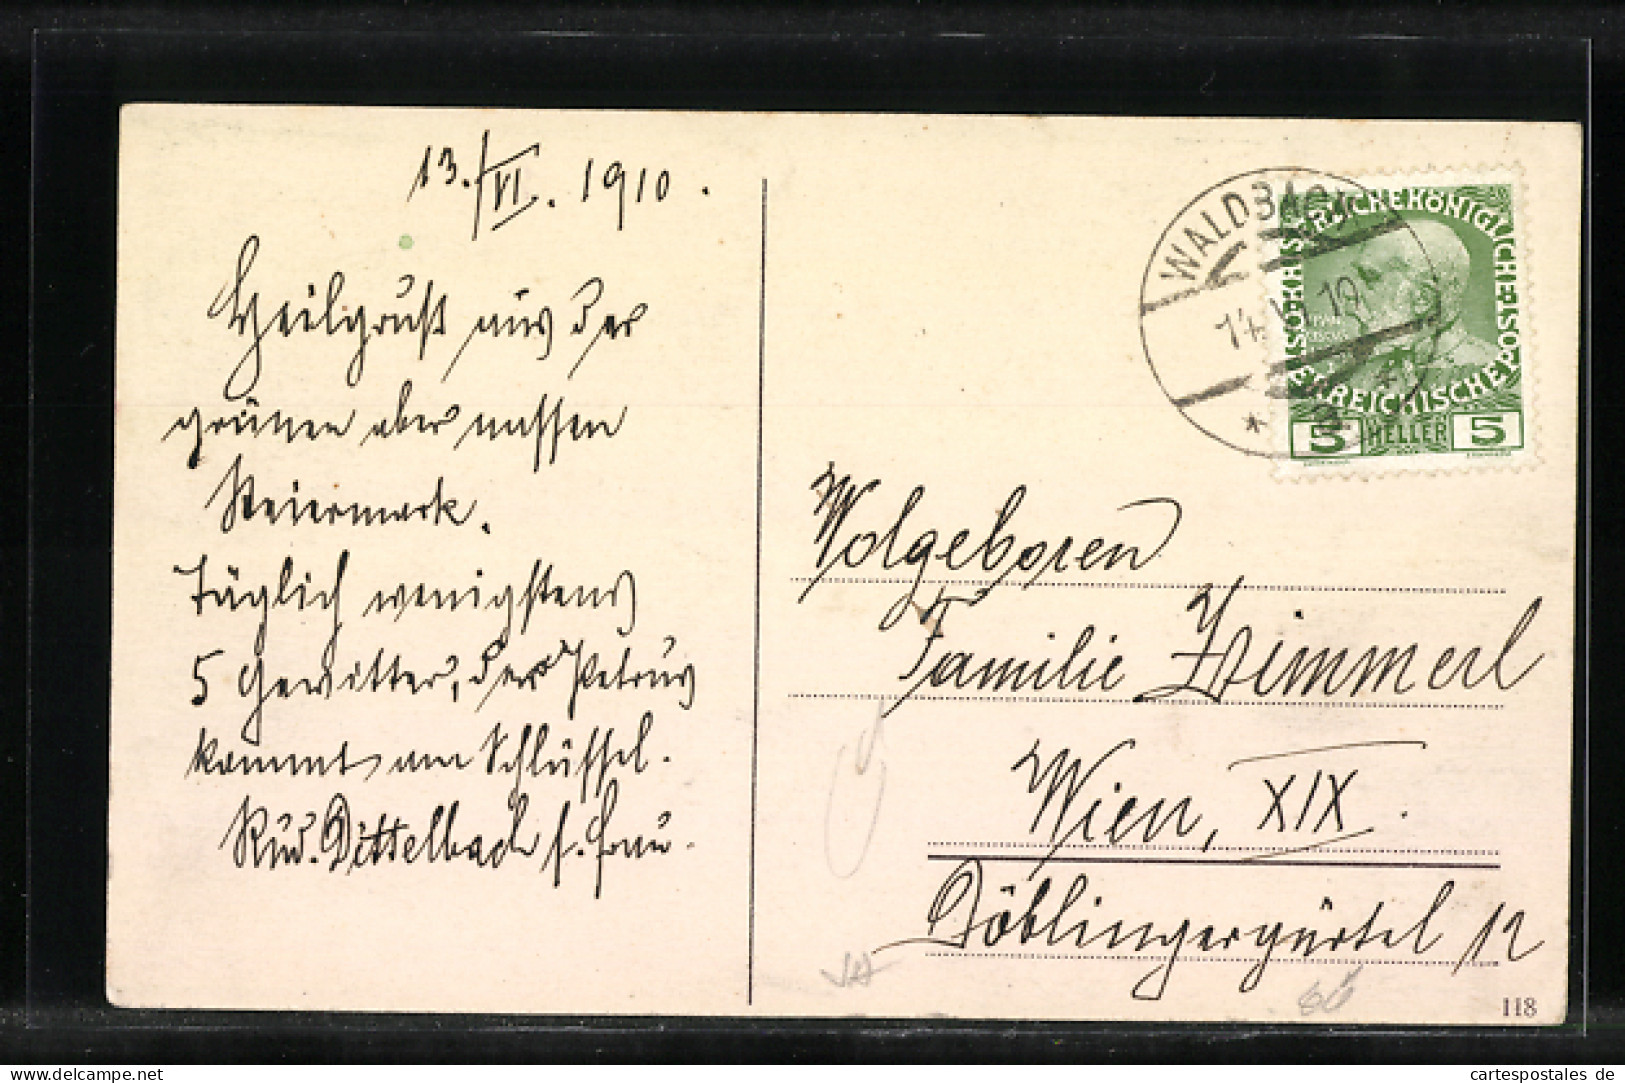 13./VI. 1910.
Heilgruß aus der
grünen aber nassen
Steiermark.
Täglich wenigstens
5 Gewitter, der Petrus
kommt am Schlüssel.
Rud. Dittelbach s. Frau.
WALDBACH
14. VI. 10
KAISERLICHE KÖNIGLICHE
ÖSTERREICHISCHE POST
5 HELLER 5
Wolgeboren
Familie Zimmerl
Wien, XIX.
Döblingergürtel 12
118
cartespostales de
www.delcampe.net